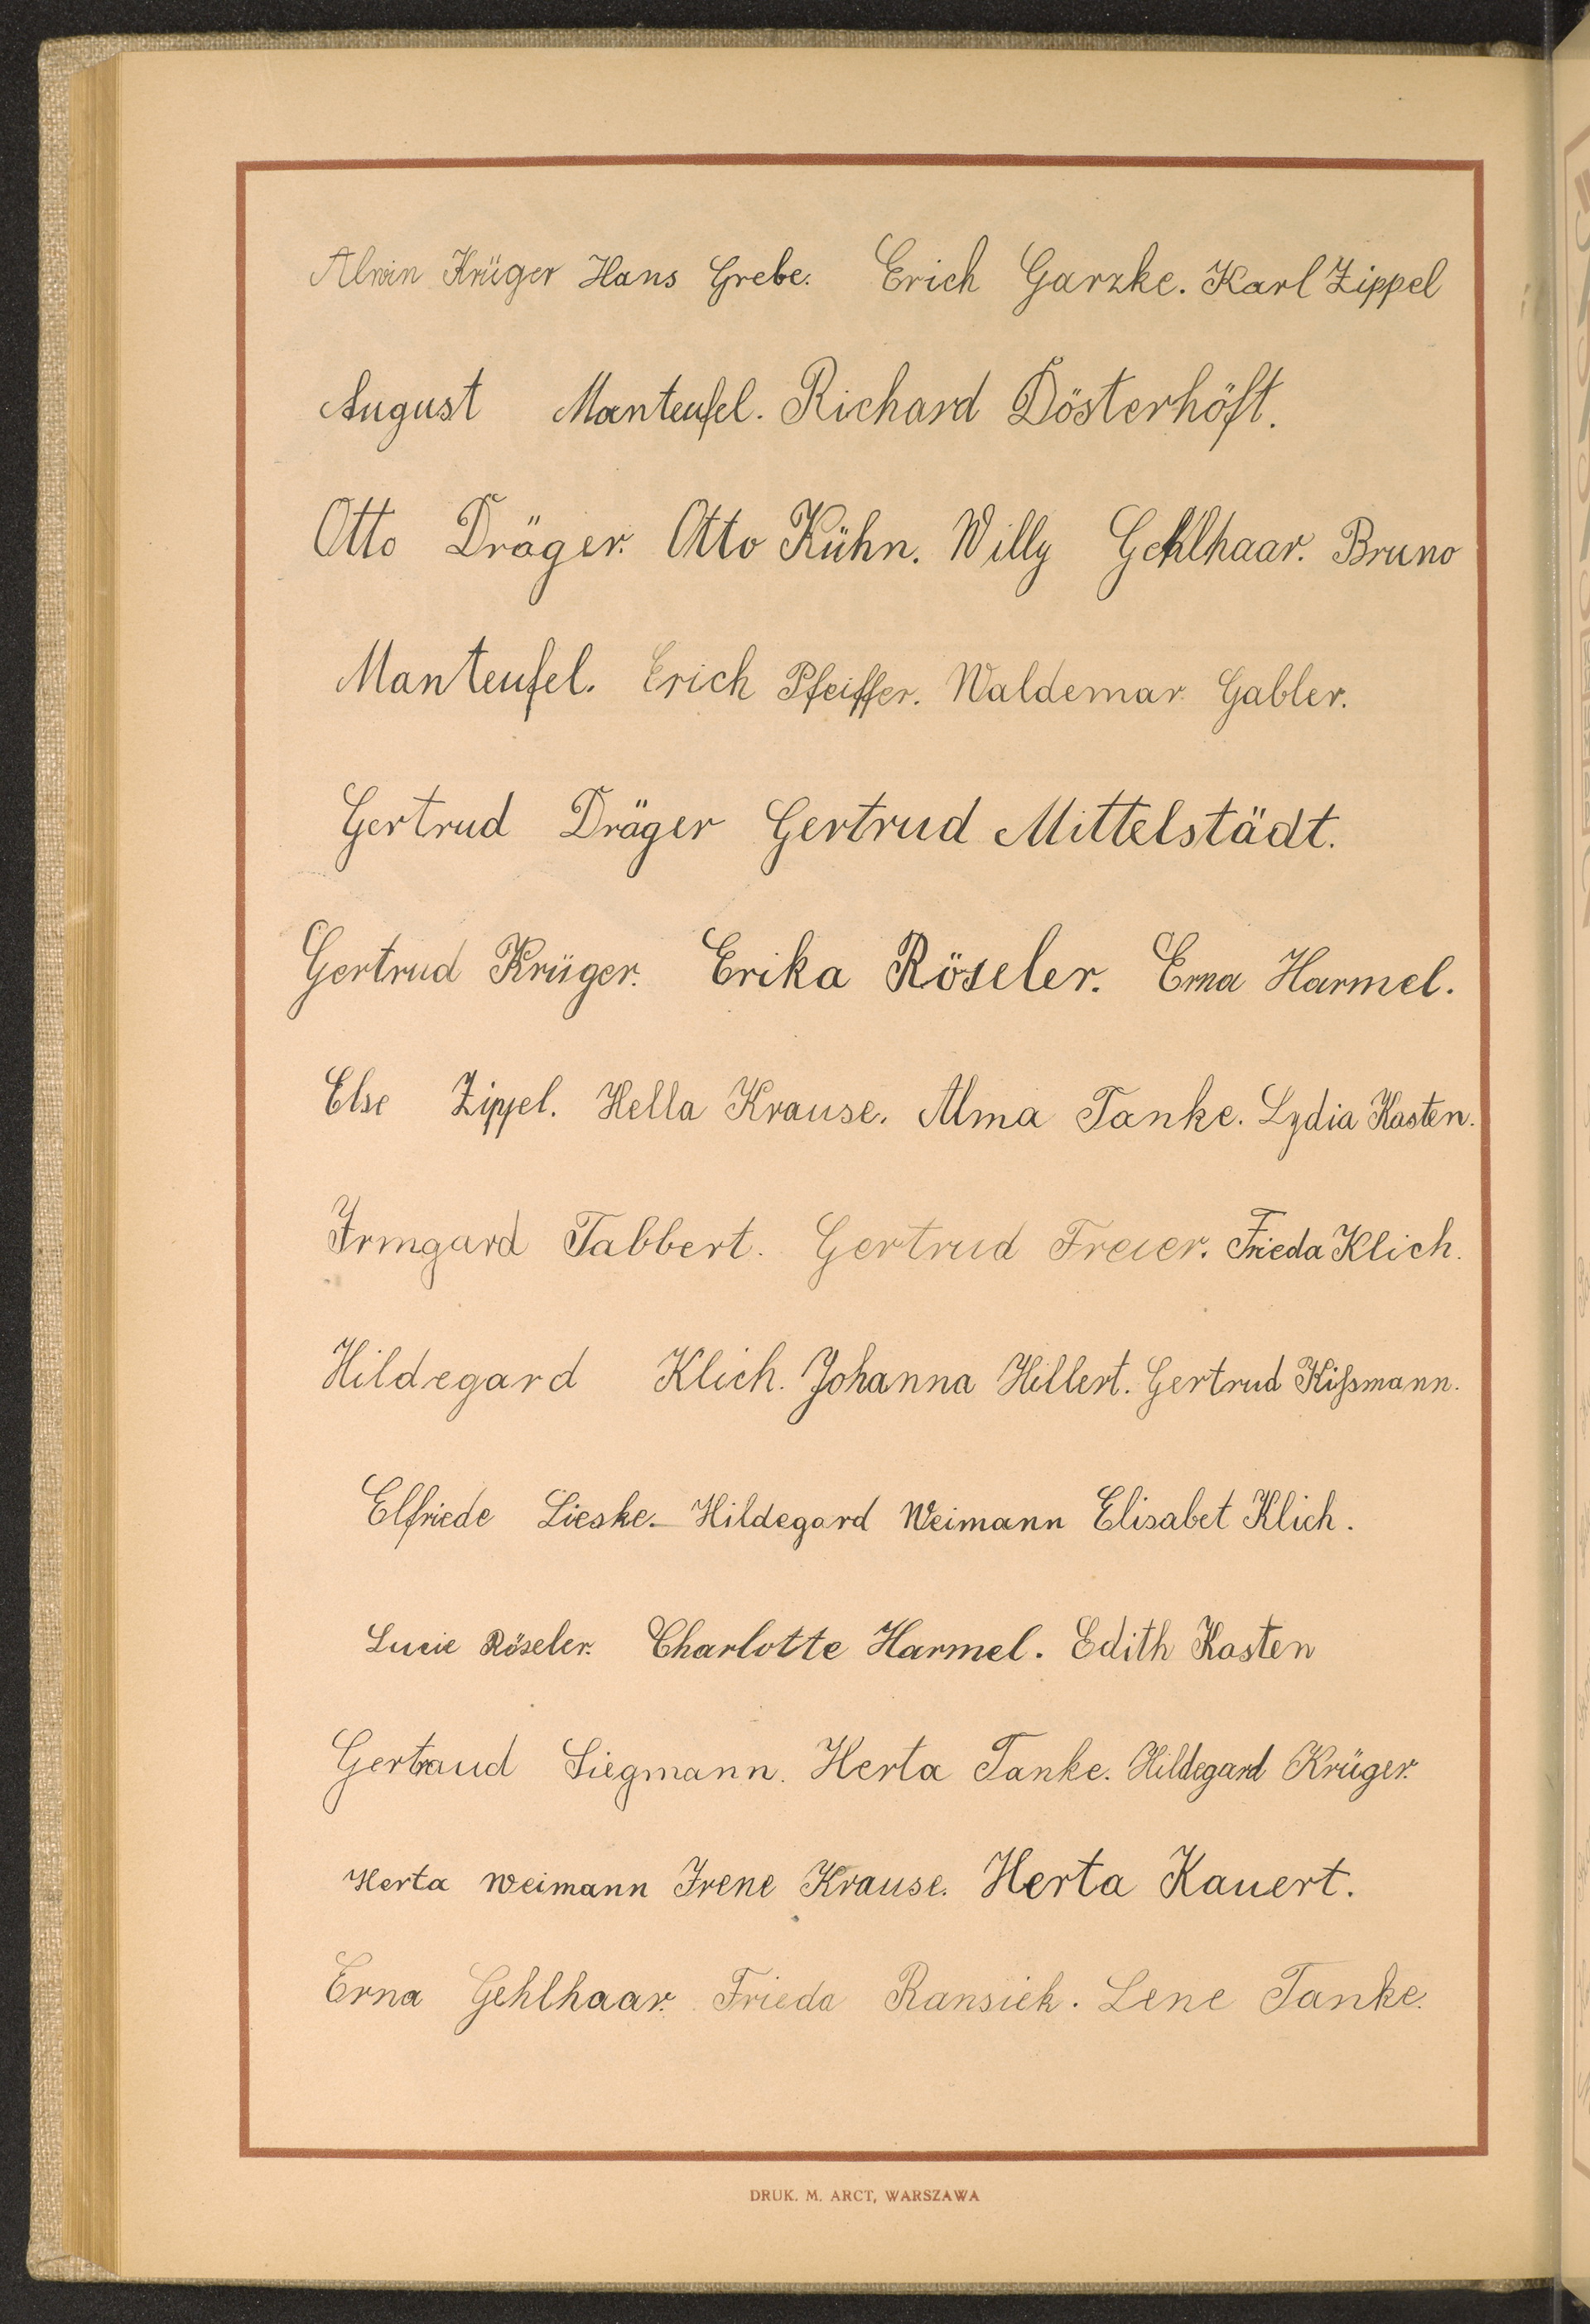 Alwin Krüger Hans Grebe. Erich Garzke. Karl Zippel
August Manteufel. Richard Dösterhöft.
Otto Dräger. Otto Kühn. Willy Gehlhaar. Bruno
Manteufel. Erich Pfeiffer. Waldemar Gabler.
Gertrud Dräger Gertrud Mittelstädt.
Gertrud Krüger. Erika Röseler. Erna Harmel.
Else Zippel. Hella Krause. Alma Tanke. Lydia Kasten.
Irmgard Tabbert. Gertrud Freier. Frieda Klich.
Hildegard Klich. Johanna Hillert. Gertrud Kißmann.
Elfriede Lieske. Hildegard Weimann Elisabet Klich.
Lucie Röseler. Charlotte Harmel. Edith Kasten
Gertraud Siegmann. Herta Tanke. Hildegard Krüger.
Herta Weimann Irene Krause. Herta Kauert.
Erna Gehlhaar. Frieda Ransiek. Lene Tanke.
DRUK. M. ARCT, WARSZAWA